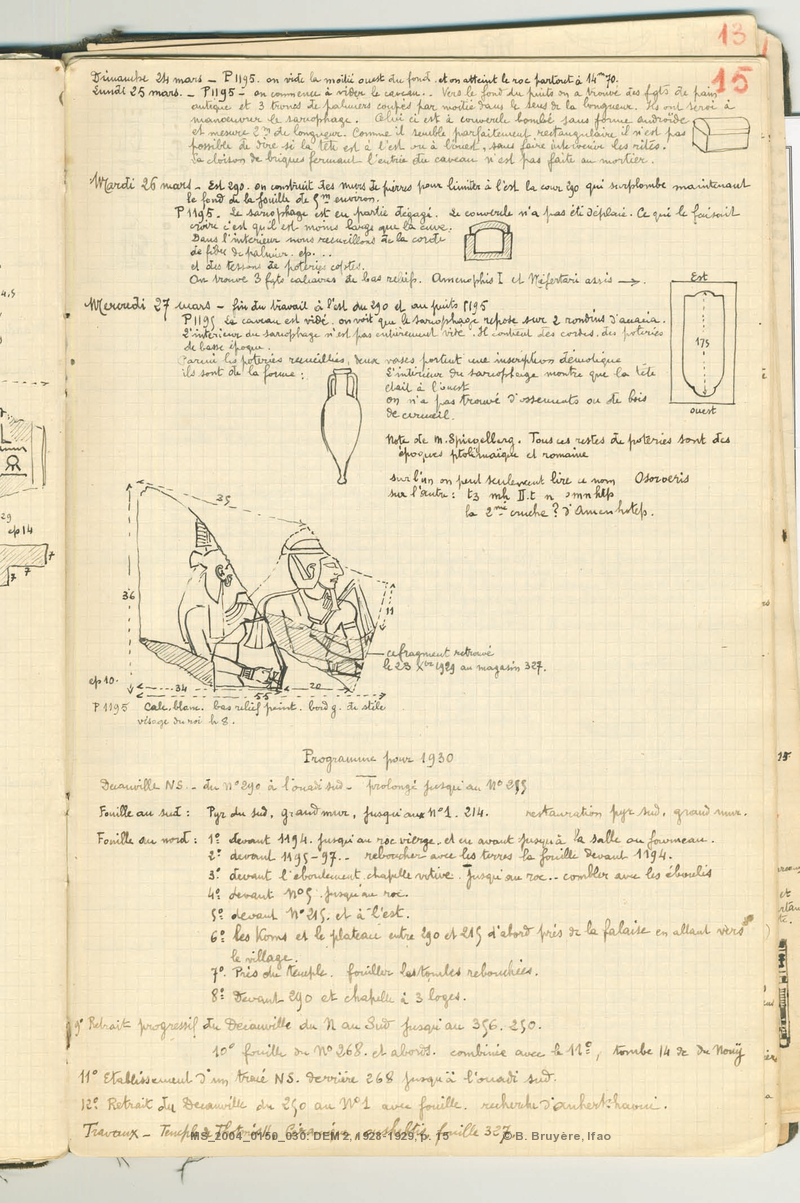 13
15
Dimanche 24 mars – P1195. on vide la moitié ouest du fond et on atteint le roc partout à 14m70.
Lundi 25 mars. – P1195 – on commence à vider le caveau. Vers le fond du puits on a trouvé des fgts de pain
antique et 3 troncs de palmiers coupés par moitié dans le sens de la longueur. Ils ont servi à
manoeuvrer le sarcophage. Celui ci est à couvercle bombé sans forme androïde
et mesure 2m de longueur. Comme il semble parfaitement rectangulaire il n'est pas
possible de dire si la tête est à l'est ou à l'ouest, sans faire intervenir les rites.
La cloison de briques fermant l'entrée du caveau n'est pas faite au mortier.
Mardi 26 mars – Est 290. on construit des murs de pierres pour limiter à l'est la cour 290 qui surplombe maintenant
le fond de la fouille de 5m environ.
P1195. Le sarcophage est en partie dégagé. Le couvercle n'a pas été déplacé. Ce qui le faisait
croire c'est qu'il est moins large que la cuve.
Dans l'intérieur nous recueillons de la corde
de fibre de palmier. ep. ..
et des tessons de poteries coptes.
On trouve 3 fgts calcaires de bas relief. Amenophis I et Néfertari assis →.
Est
Mercredi 27 mars – fin du travail à l'est du 290 et au puits 1195
P1195 Le caveau est vidé. on voit que le sarcophage repose sur 2 rondins d'acacia.
L'intérieur du sarcophage n'est pas entièrement vide. Il contient des cordes. des poteries
de basse époque.
175
Parmi les poteries recueillies, deux vases portent une inscription démotique
ils sont de la forme :
L'intérieur du sarcophage montre que la tête
était à l'ouest
on n'a pas trouvé d'ossements ou de bois
de cercueil.
ouest
Note de M. Spiegelberg. Tous ces restes de poteries sont des
époques ptolémaïque et romaine
sur l'un on peut seulement lire ce nom Osoroeris
sur l'autre : t3 mh II.t n imnhtp
la 2me cruche ? d'Amenhotep.
35
36
11
ce fragment retrouvé
le 23 Xbre 1929 au magasin 327.
ep 10.
34
20
55
P 1195 Calc. blanc. bas relief peint. bord g. de stèle
visage du roi h 8.
Programme pour 1930
Decauville NS. – du N° 290 à l'ouadi sud – prolongé jusqu'au N° 255
Fouille au sud : Pyr du sud, grand mur, jusqu'aux N° 1. 214. restauration pyr sud, grand mur.
Fouille au nord : 1° devant 1194. jusqu'au roc vierge. et en avant jusqu'à la salle au fourneau.
2° devant 1195–97. – reboucher avec les terres la fouille devant 1194.
3° devant l'éboulement chapelle votive. Jusqu'au roc. – combler avec les éboulis
4° devant N° 5 jusqu'au roc.
5° devant N° 215. et à l'est.
6° Les Koms et le plateau entre 290 et 215 d'abord près de la falaise en allant vers
le village.
7° Près du temple. fouiller les tombes rebouchées.
8° Devant 290 et chapelle à 3 loges.
9° Retrait progressif du Decauville du N au Sud jusqu'au 356. 250.
10° fouille du N° 268. et abords. combinée avec le 11°, tombe 14 de Du Nouÿ
11° Etablissement d'un tracé NS. derrière 268 jusqu'à l'ouadi sud.
12° Retrait du Decauville du 250 au N° 1 avec fouille. recherche d'anherkhaoui.
Travaux – Temple fouille 327
MS_2004_0150_030: DEM 2, 1928-1929, p. 15 © B. Bruyère, Ifao
29
ep 14
7
7
7